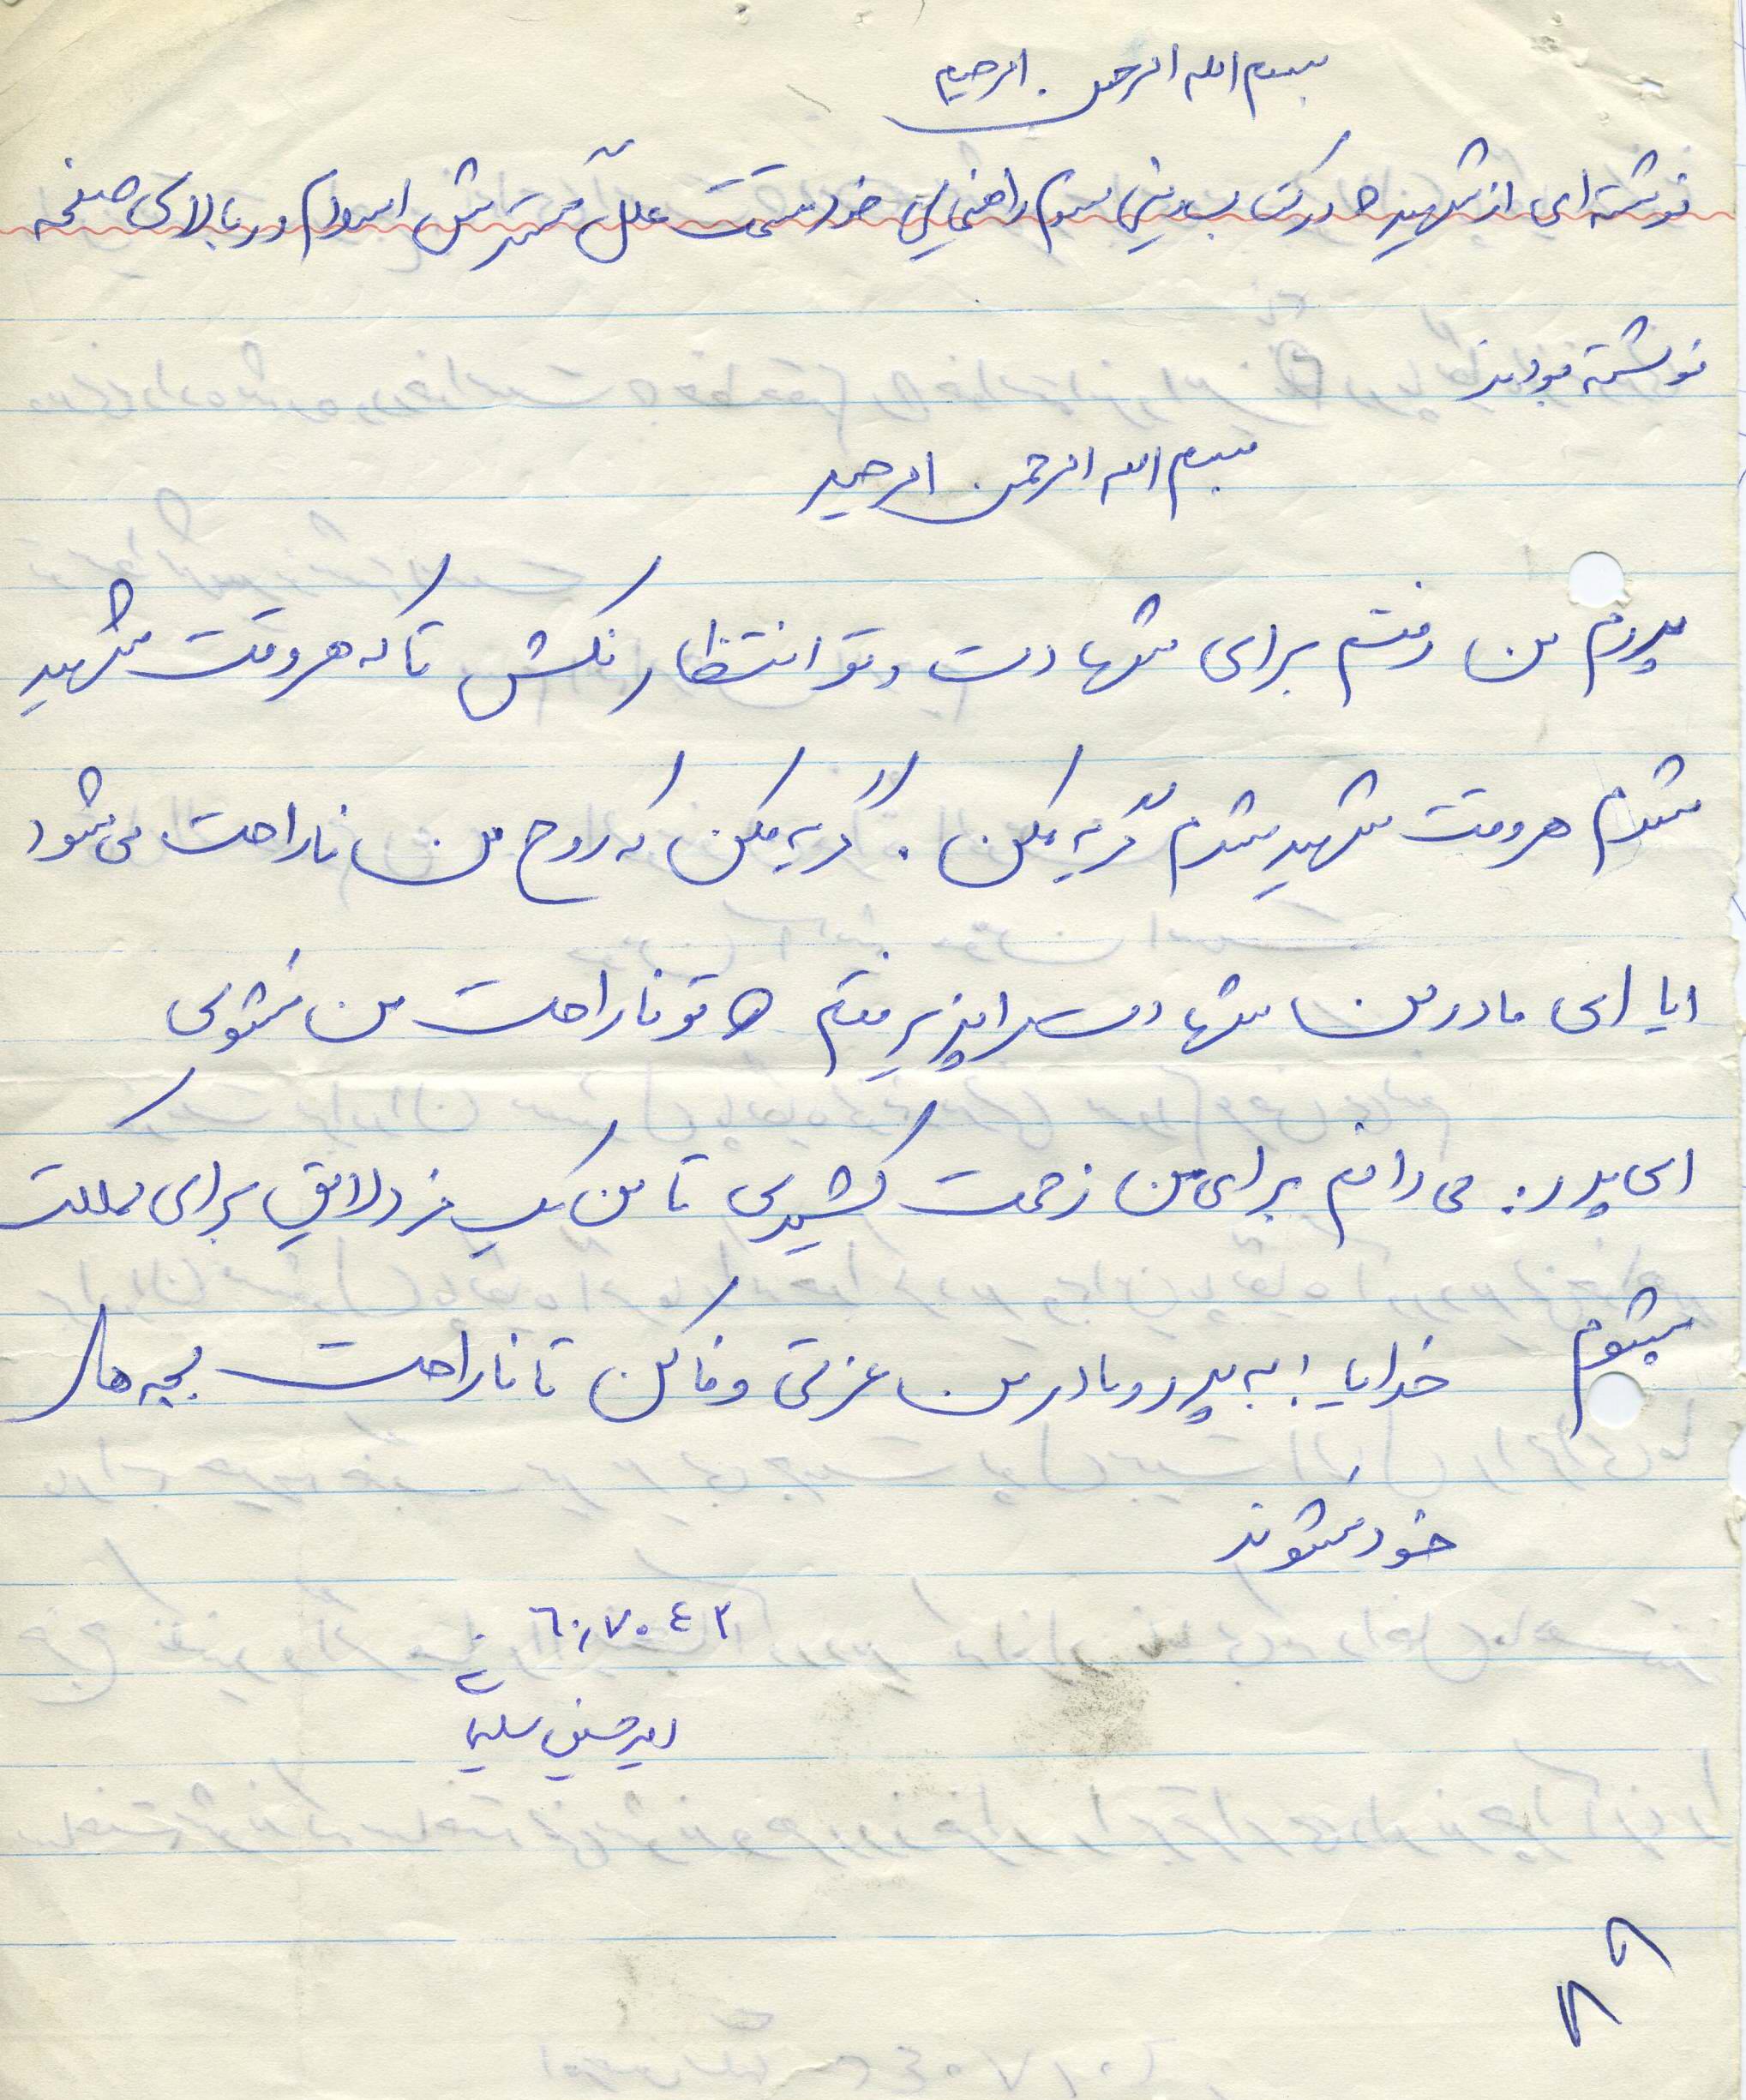 بسم الله الرحمن الرحیم
نوشته‌ای از شهید در کتاب دینی سوم راهنمایی خود قسمت علل گسترش اسلام در بالای صفحه
نوشته بودند
بسم الله الرحمن الرحیم
پدرم من رفتم برای شهادت و تو انتظار نکش تا که هر وقت شهید
شدم هر وقت شهید شدم گریه مکن . گریه مکن که روح من ناراحت می‌شود
ایا ای مادر من شهادت را پذیرفتم تو ناراحت من نشوی
ای پدر: می دانم برای من زحمت کشیدی تا من یک فرد لایق برای مملکت
بشوم خدایا! به پدر و مادر من عزتی وفا کن تا ناراحت بچه های
خود نشوند
امیر حسینی